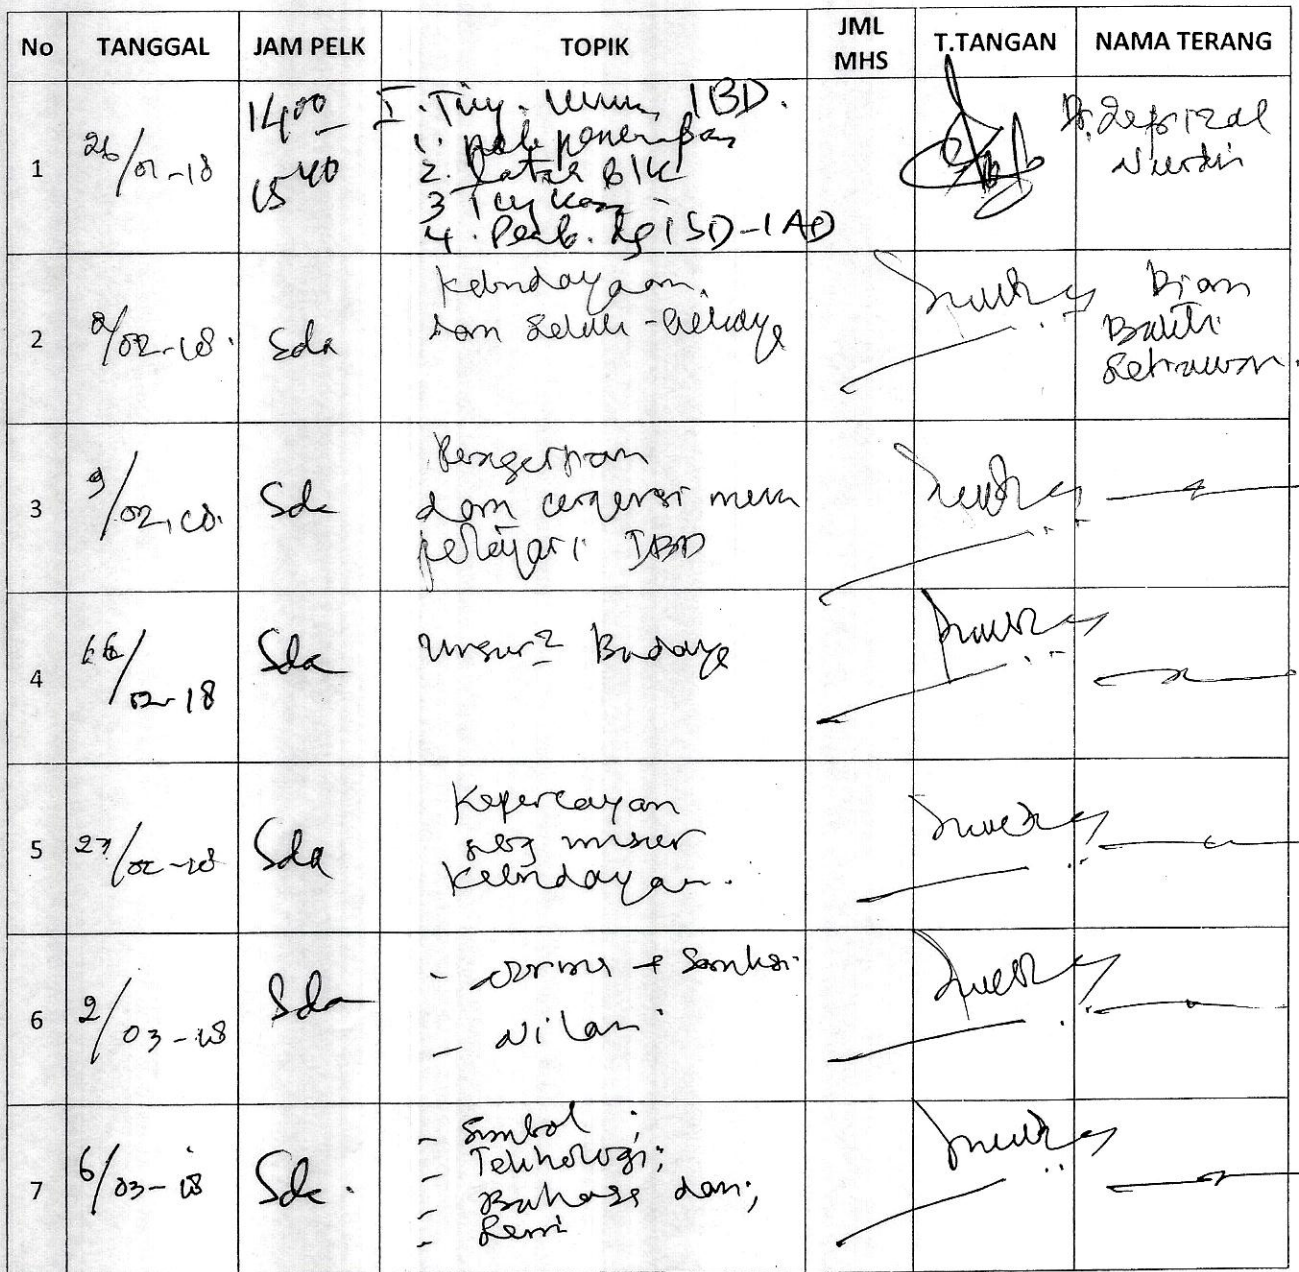 No TANGGAL JAM PELK TOPIK JML MHS T.TANGAN NAMA TERANG
1 26/01-18 14 00 - 15 40 I. Tinj. Umum IBD.
1.
2. Latar Blk
3
4. ISD-IAD
Nurdin
2 2/02-18. Sda Kebudayaan
dan
Dian
Bakti
Setiawan.
3 9/02-18. Sda Pengertian
dan mem
pelajari IBD
4 16/02-18 Sda Unsur2 Budaya
5 27/02-18 Sda Kepercayan
sbg unsur
Kebudayan.
6 2/03-18 Sda - Norma + Sanksi
- Nilai
7 6/03-18 Sda. - Simbol;
- Tekhologi;
- Bahasa dan;
- Seni